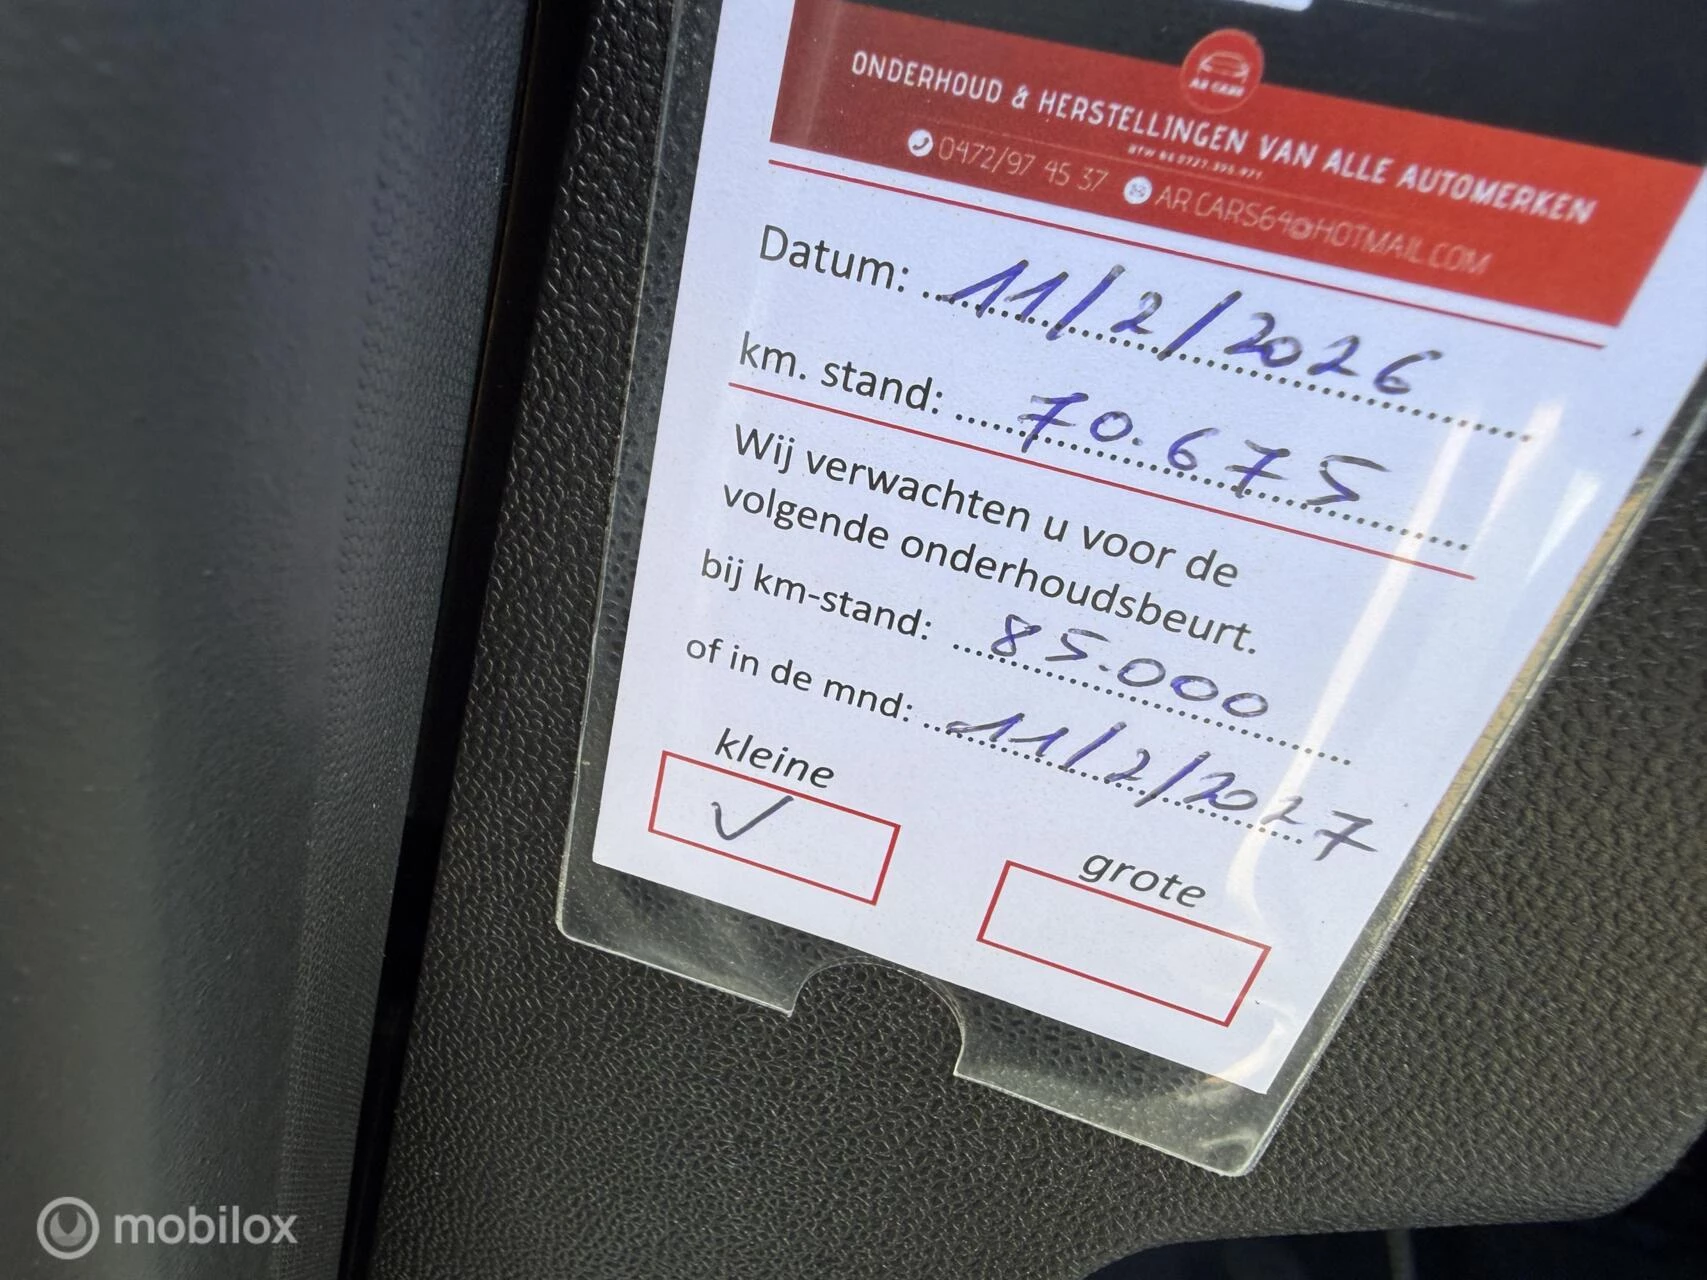 AR CARS
ONDERHOUD & HERSTELLINGEN VAN ALLE AUTOMERKEN
BTW BE0727.395.971
0472/97 45 37 AR CARS64@HOTMAIL.COM
Datum: 11/2/2026
km. stand: 70.675
Wij verwachten u voor de
volgende onderhoudsbeurt.
bij km-stand: 85.000
of in de mnd: 11/2/2027
kleine ✓
grote
mobilox